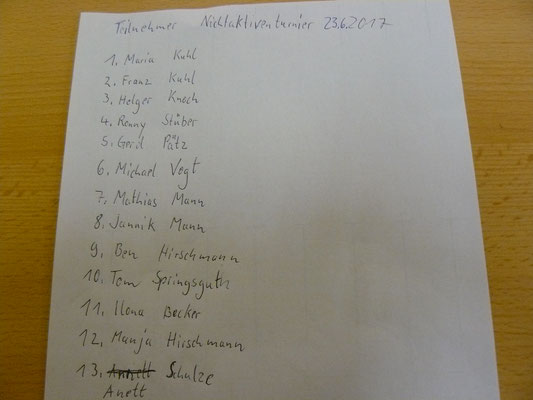 Teilnehmer Nichtaktiventurnier 23.6.2017
1. Maria Kuhl
2. Franz Kuhl
3. Holger Knoch
4. Ronny Stüber
5. Gerd Pätz
6. Michael Vogt
7. Mathias Mann
8. Jannik Mann
9. Ben Hirschmann
10. Tom Springsguth
11. Ilona Becker
12. Manja Hirschmann
13. Schulze
Anett